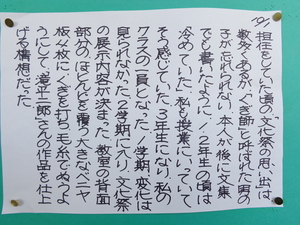 191
担任をしていた頃の“文化祭の思い出は
数多くあるが“くぎ師”と呼ばれた男の
子が忘れられない。本人が後に文集
でも書いたように、1、2年生の頃は
冷めていた。私も授業にいっていて
そう感じていた。3年生になり、私の
クラスの一員となった。1学期、変化は
見られなかった。2学期に入り、文化祭
の展示内容が決まった。教室の背面
部分のほとんどを覆う大きなベニヤ
板4枚に、くぎを打ち毛糸でぬうよ
うにして、滝平二郎さんの作品を仕上
げる構想だった。